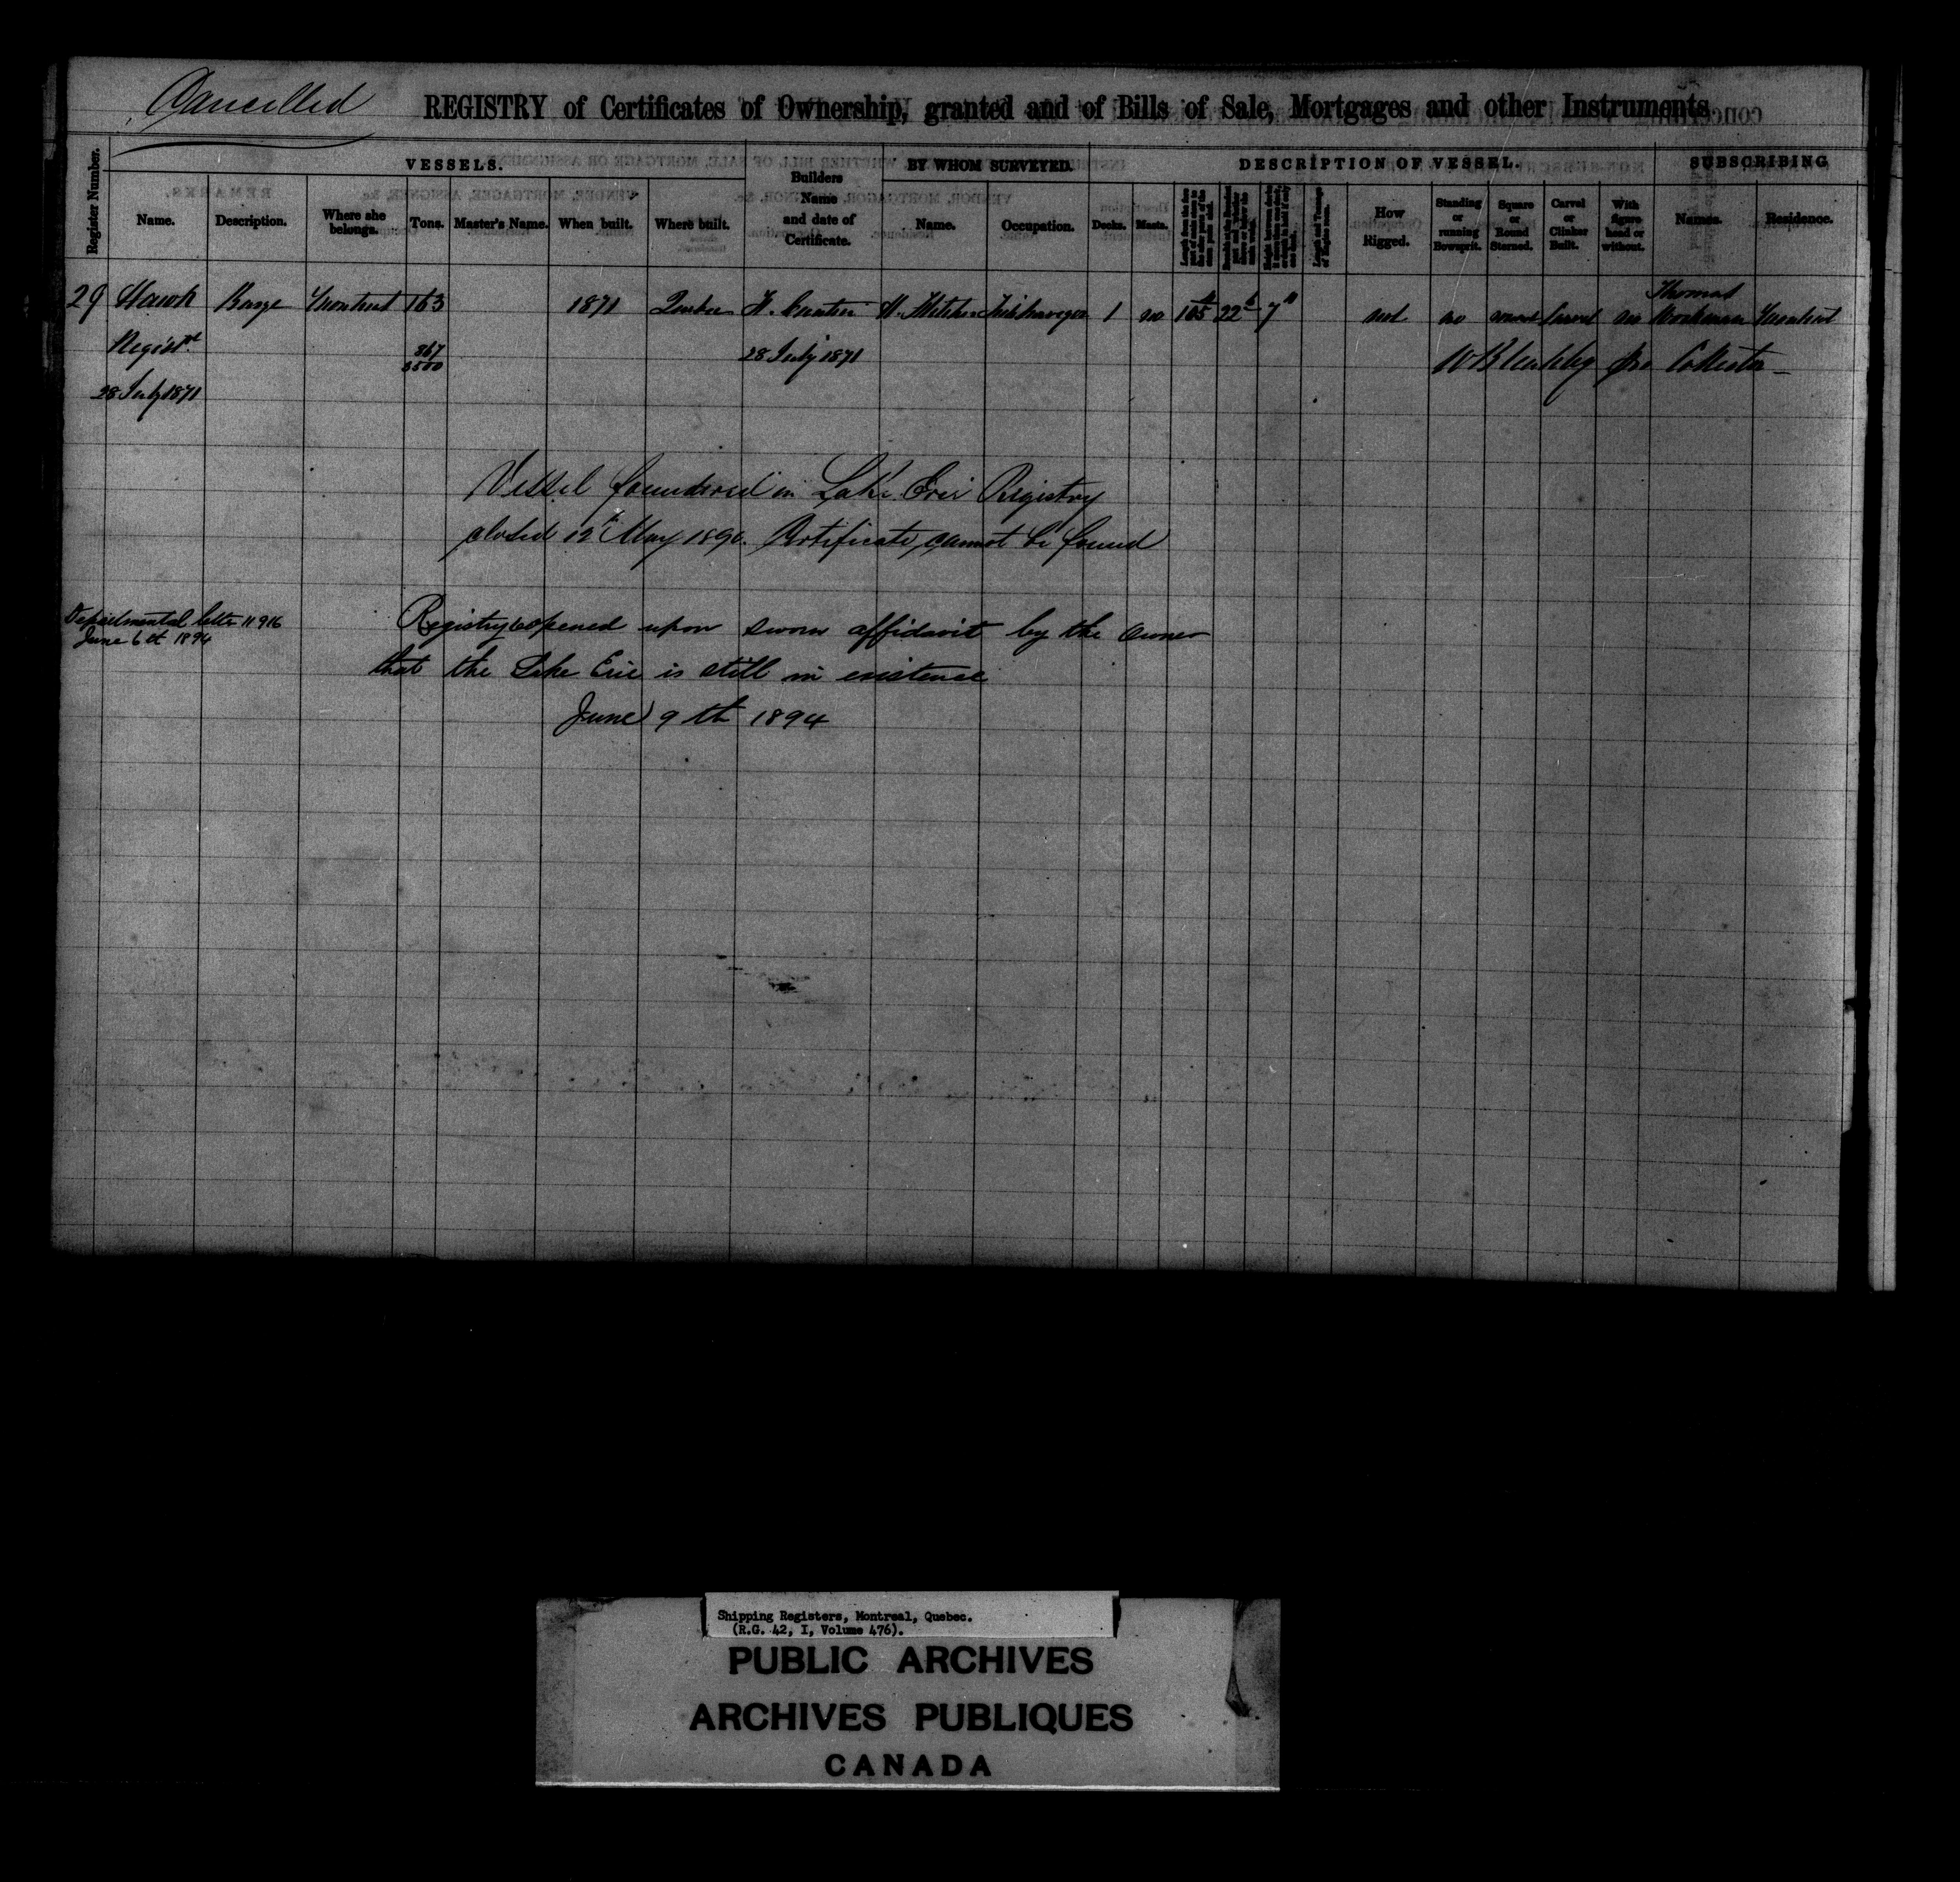 Cancelled
REGISTRY of Certificates of Ownership, granted and of Bills of Sale, Mortgages and other Instruments
Register Number.
VESSELS.
Builders Name and date of Certificate.
BY WHOM SURVEYED.
DESCRIPTION OF VESSEL.
SUBSCRIBING
Name. Description. Where she belongs. Tons. Master's Name. When built. Where built. Name. Occupation. Decks. Masts. How Rigged. Standing or running Bowsprit. Square or Round Sterned. Carvel or Clinker Built. With figure head or without. Names. Residence.
29 Hawk Barge Montreal 163 1871 Quebec 1 no 105 22 7 not no Carvel no Thomas Workman Montreal
Regist.d 367/3500 28 July 1871 pro Collector
28 July 1871
Vessel foundered in Lake Erie Registry
closed 12th May 1890. Certificate cannot be found
Departmental letter 11916
June 6th 1894
Registry reopened upon sworn affidavit by the owner
that the Lake Erie is still in existence
June 9th 1894
Shipping Registers, Montreal, Quebec.
(R.G. 42, I, Volume 476).
PUBLIC ARCHIVES
ARCHIVES PUBLIQUES
CANADA